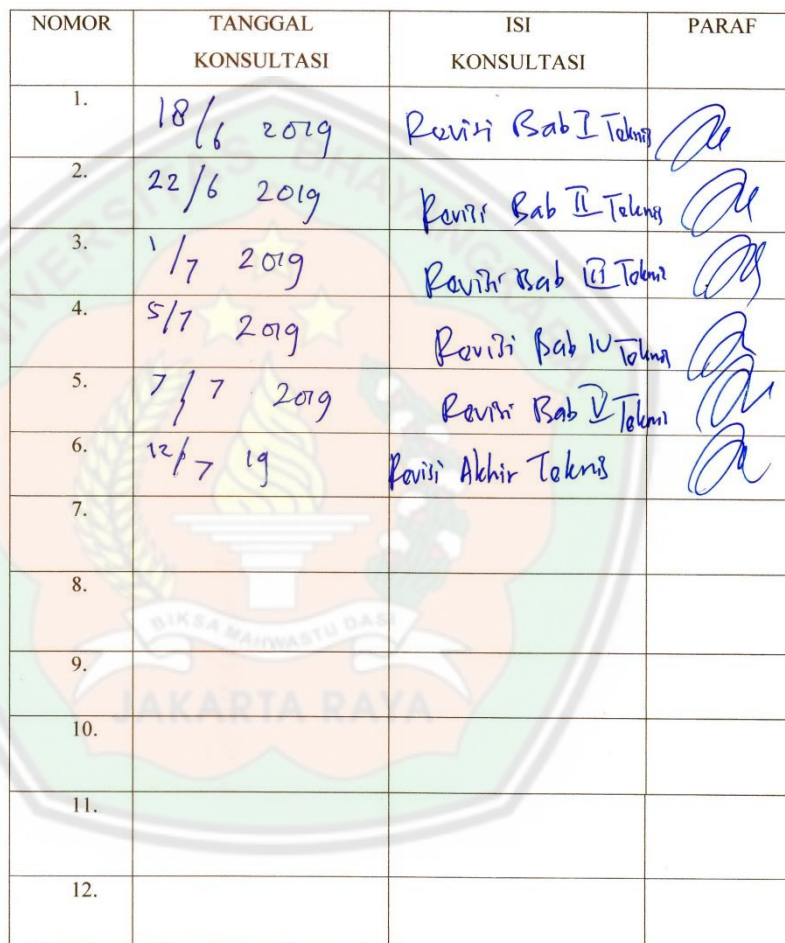 NOMOR TANGGAL KONSULTASI ISI KONSULTASI PARAF
1. 18/6 2019 Revisi Bab I Teknis
2. 22/6 2019 Revisi Bab II Teknis
3. 1/7 2019 Revisi Bab III Teknis
4. 5/7 2019 Revisi Bab IV Teknis
5. 7/7 2019 Revisi Bab V Teknis
6. 12/7 19 Revisi Akhir Teknis
7.
8.
9.
10.
11.
12.
UNIVERSITAS BHAYANGKARA
BIKSA MAHWASTU DASI
JAKARTA RAYA